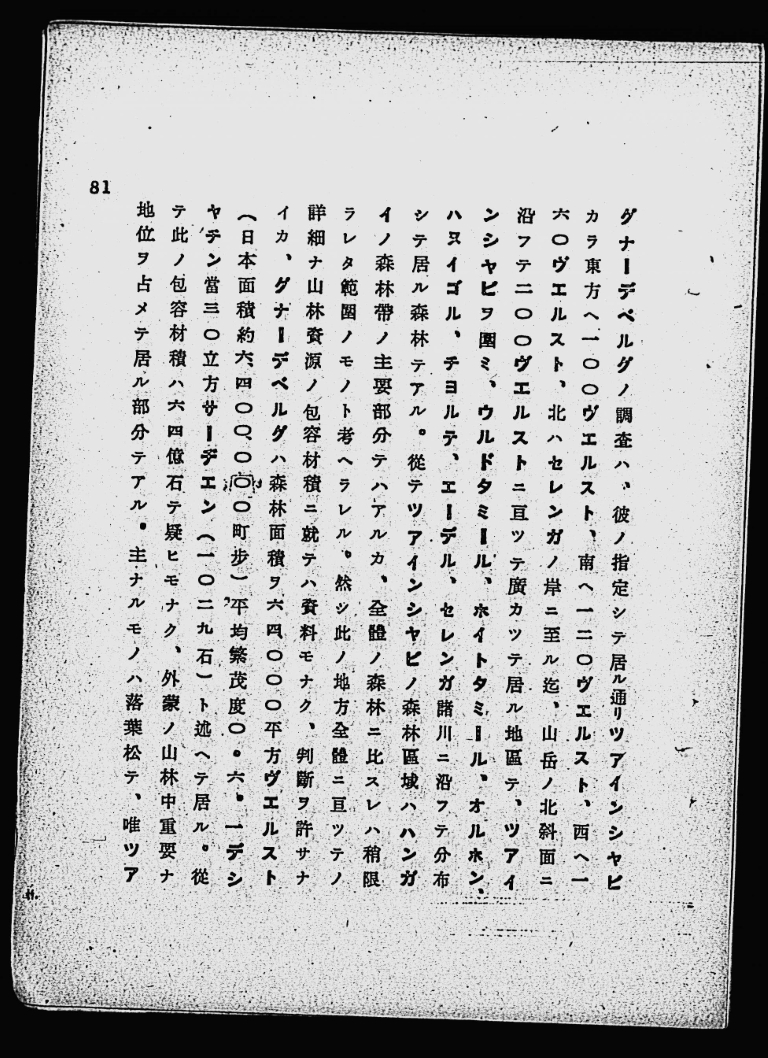 グナーデペルグノ調査ハ、彼ノ指定シテ居ル通リツアインシヤビ
カラ東方ヘ一〇〇ヴエルスト、南ヘ一二〇ヴエルスト、西ヘ一
六〇ヴエルスト、北ハセレンガノ岸ニ至ル迄、山岳ノ北斜面ニ
沿フテ二〇〇ヴエルストニ亘ツテ廣カツテ居ル地區テ、ツアイ
ンシヤビヲ圍ミ、ウルドタミール、ホイトタミール、オルホン、
ハヌイゴル、チヨルテ、エーデル、セレンガ諸川ニ沿フテ分布
シテ居ル森林テアル。從テツアインシヤビノ森林區域ハハンガ
イノ森林帶ノ主要部分テハアルカ、全體ノ森林ニ比スレハ稍限
ラレタ範圍ノモノト考ヘラレル。然シ此ノ地方全體ニ亘ツテノ
詳細ナ山林資源ノ包容材積ニ就テハ資料モナク、判斷ヲ許サナ
イカ、グナーデペルグハ森林面積ヲ六四〇〇〇平方ヴエルスト
(日本面積約六、四〇〇、〇〇〇町步)平均繁茂度〇。六。一デシ
ヤチン當三〇立方サーヂエン(一〇二九石)ト述ヘテ居ル。從
テ此ノ包容材積ハ六四億石テ疑ヒモナク、外蒙ノ山林中重要ナ
地位ヲ占メテ居ル部分テアル。主ナルモノハ落葉松テ、唯ツア
81